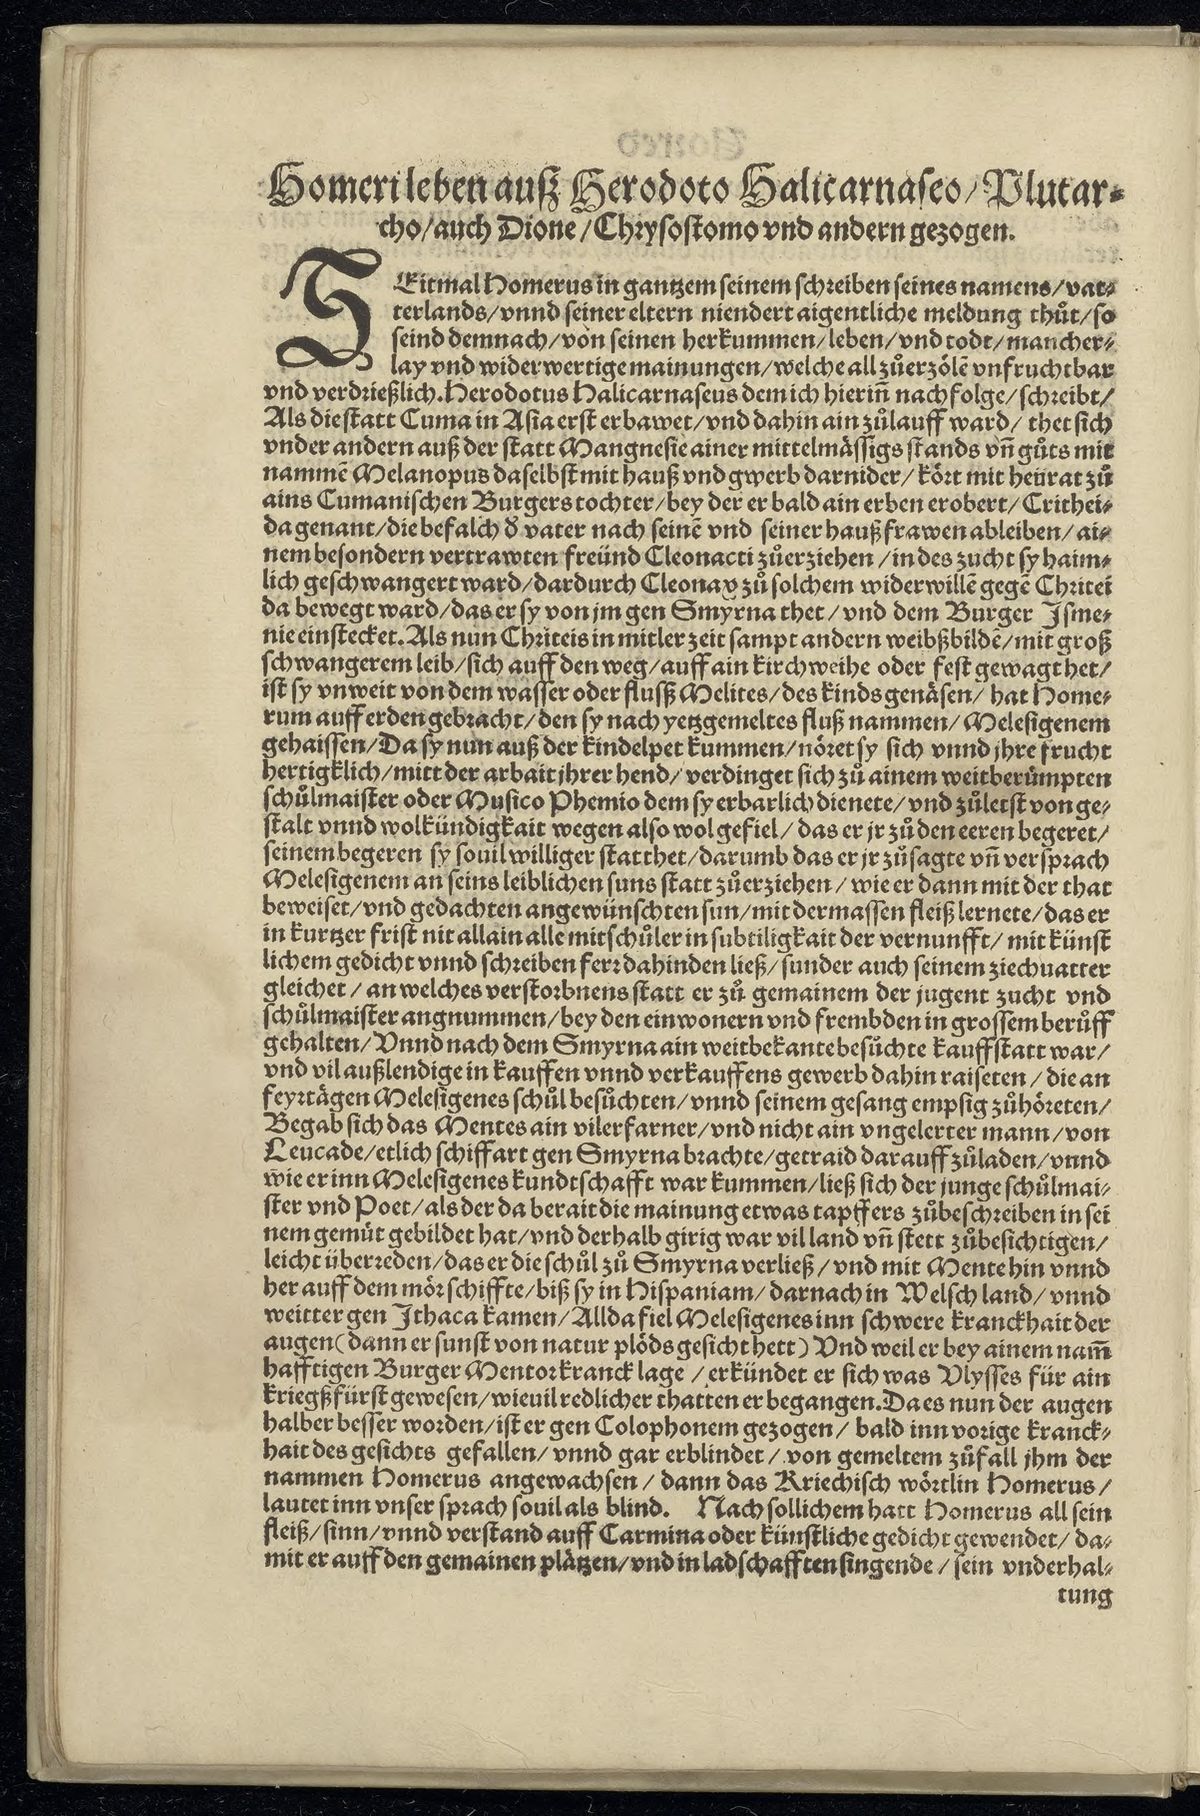 Homeri leben auß Herodoto Halicarnaseo/ Plutar⸗
cho/ auch Dione/ Chrysostomo vnd andern gezogen.
SEitmal Homerus in gantzem seinem schreiben seines namens/ vat⸗
terlands/ vnnd seiner eltern niendert aigentliche meldung thůt/ so
seind demnach/ von seinen herkummen/ leben/ vnd todt/ mancher⸗
lay vnd widerwertige mainungen/ welche all zůerzölẽ vnfruchtbar
vnd verdrießlich. Herodotus Halicarnaseus dem ich hierin̄ nachfolge/ schreibt/
Als die statt Cuma in Asia erst erbawet/ vnd dahin ain zůlauff ward/ thet sich
vnder andern auß der statt Mangnesie ainer mittelmässigs stands vn̄ gůts mit
nammẽ Melanopus daselbst mit hauß vnd gwerb darnider/ kört mit heürat zů
ains Cumanischen Burgers tochter/ bey der er bald ain erben erobert/ Crithei⸗
da genant/ die befalch d̕ vater nach seinẽ vnd seiner haußfrawen ableiben/ ai⸗
nem besondern vertrawten freünd Cleonacti zůerziehen/ in des zucht sy haim⸗
lich geschwangert ward/ dardurch Cleonax zů solchem widerwillẽ gegẽ Chritei
da bewegt ward/ das er sy von jm gen Smyrna thet/ vnd dem Burger Isme⸗
nie einstecket. Als nun Chriteis in mitler zeit sampt andern weibßbildẽ/ mit groß
schwangerem leib/ sich auff den weg/ auff ain kirchweihe oder fest gewagt het/
ist sy vnweit von dem wasser oder flusß Melites/ des kinds genäsen/ hat Home⸗
rum auff erden gebracht/ den sy nach yetzgemeltes fluß nammen/ Melesigenem
gehaissen/ Da sy nun auß der kindelpet kummen/ nöret sy sich vnnd jhre frucht
hertigklich/ mitt der arbait jhrer hend/ verdinget sich zů ainem weitberůmpten
schůlmaister oder Musico Phemio dem sy erbarlich dienete/ vnd zůletst von ge⸗
stalt vnnd wolkündigkait wegen also wol gefiel/ das er jr zů den eeren begeret/
seinem begeren sy souil williger statt thet/ darumb das er jr zůsagte vn̄ versprach
Melesigenem an seins leiblichen suns statt zůerziehen/ wie er dann mit der that
beweiset/ vnd gedachten angewünschten sun/ mit dermassen fleiß lernete/ das er
in kurtzer frist nit allain alle mitschůler in subtiligkait der vernunfft/ mit künst
lichem gedicht vnnd schreiben ferr dahinden ließ/ sunder auch seinem ziechuatter
gleichet/ an welches verstorbnens statt er zů gemainem der jugent zucht vnd
schůlmaister angnummen/ bey den einwonern vnd frembden in grossem berůff
gehalten/ Vnnd nach dem Smyrna ain weitbekante besůchte kauffstatt war/
vnd vil außlendige in kauffen vnnd verkauffens gewerb dahin raiseten/ die an
feyrtägen Melesigenes schůl besůchten/ vnnd seinem gesang empsig zůhöreten/
Begab sich das Mentes ain vilerfarner/ vnd nicht ain vngelerter mann/ von
Leucade/ etlich schiffart gen Smyrna brachte/ getraid darauff zůladen/ vnnd
wie er inn Melesigenes kundtschafft war kummen/ ließ sich der junge schůlmai⸗
ster vnd Poet/ als der da berait die mainung etwas tapffers zůbeschreiben in sei
nem gemüt gebildet hat/ vnd derhalb girig war vil land vn̄ stett zůbesichtigen/
leicht überreden/ das er die schůl zů Smyrna verließ/ vnd mit Mente hin vnnd
her auff dem mör schiffte/ biß sy in Hispaniam/ darnach in Welsch land/ vnnd
weitter gen Ithaca kamen/ Allda fiel Melesigenes inn schwere kranckhait der
augen (dann er sunst von natur plöds gesicht hett) Vnd weil er bey ainem nam̄
hafftigen Burger Mentor kranck lage/ erkündet er sich was Vlysses für ain
kriegßfürst gewesen/ wieuil redlicher thatten er begangen. Da es nun der augen
halber besser worden/ ist er gen Colophonem gezogen/ bald inn vorige kranck⸗
hait des gesichts gefallen/ vnnd gar erblindet/ von gemeltem zůfall jhm der
nammen Homerus angewachsen/ dann das Kriechisch wörtlin Homerus/
lautet inn vnser sprach souil als blind. Nach sollichem hatt Homerus all sein
fleiß/ sinn/ vnnd verstand auff Carmina oder künstliche gedicht gewendet/ da⸗
mit er auff den gemainen plätzen/ vnd in ladschafften singende/ sein vnderhal⸗
tung